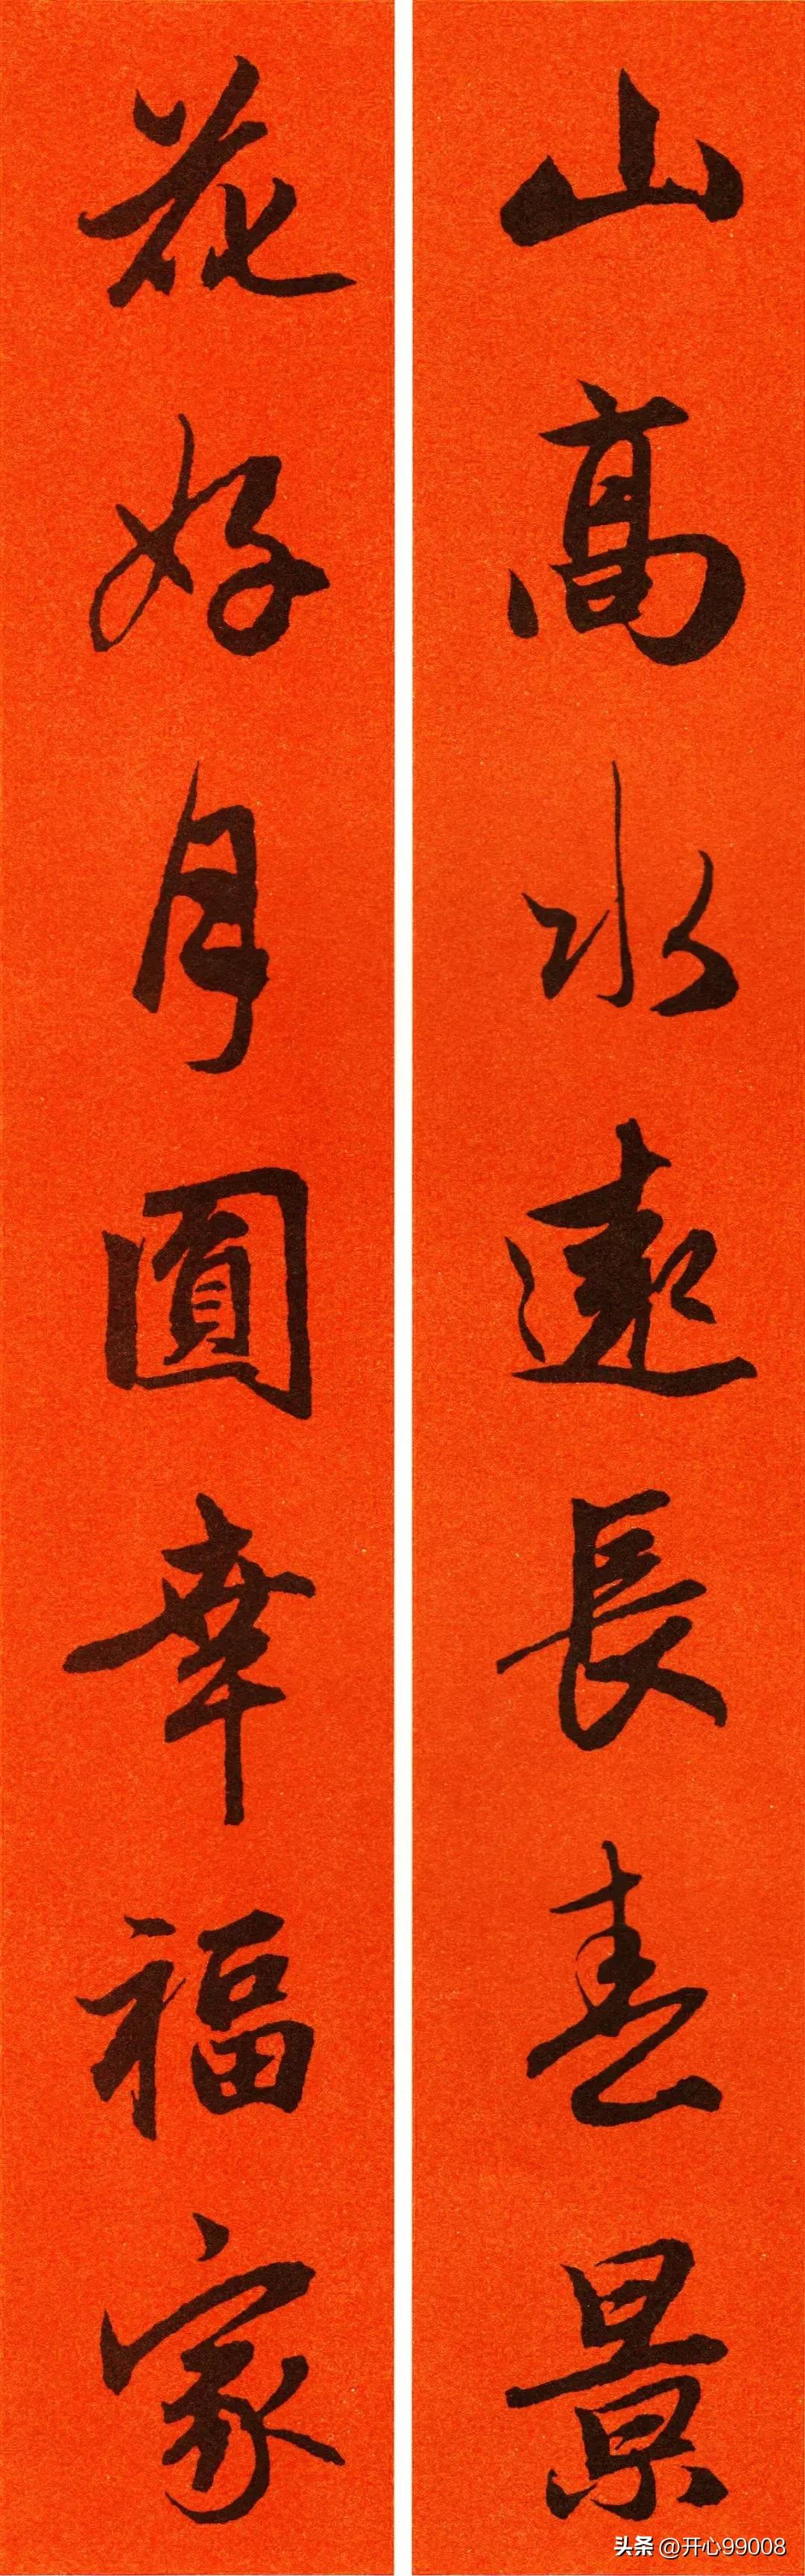 山高水遠長春景
花好月圓幸福家
头条 @开心99008